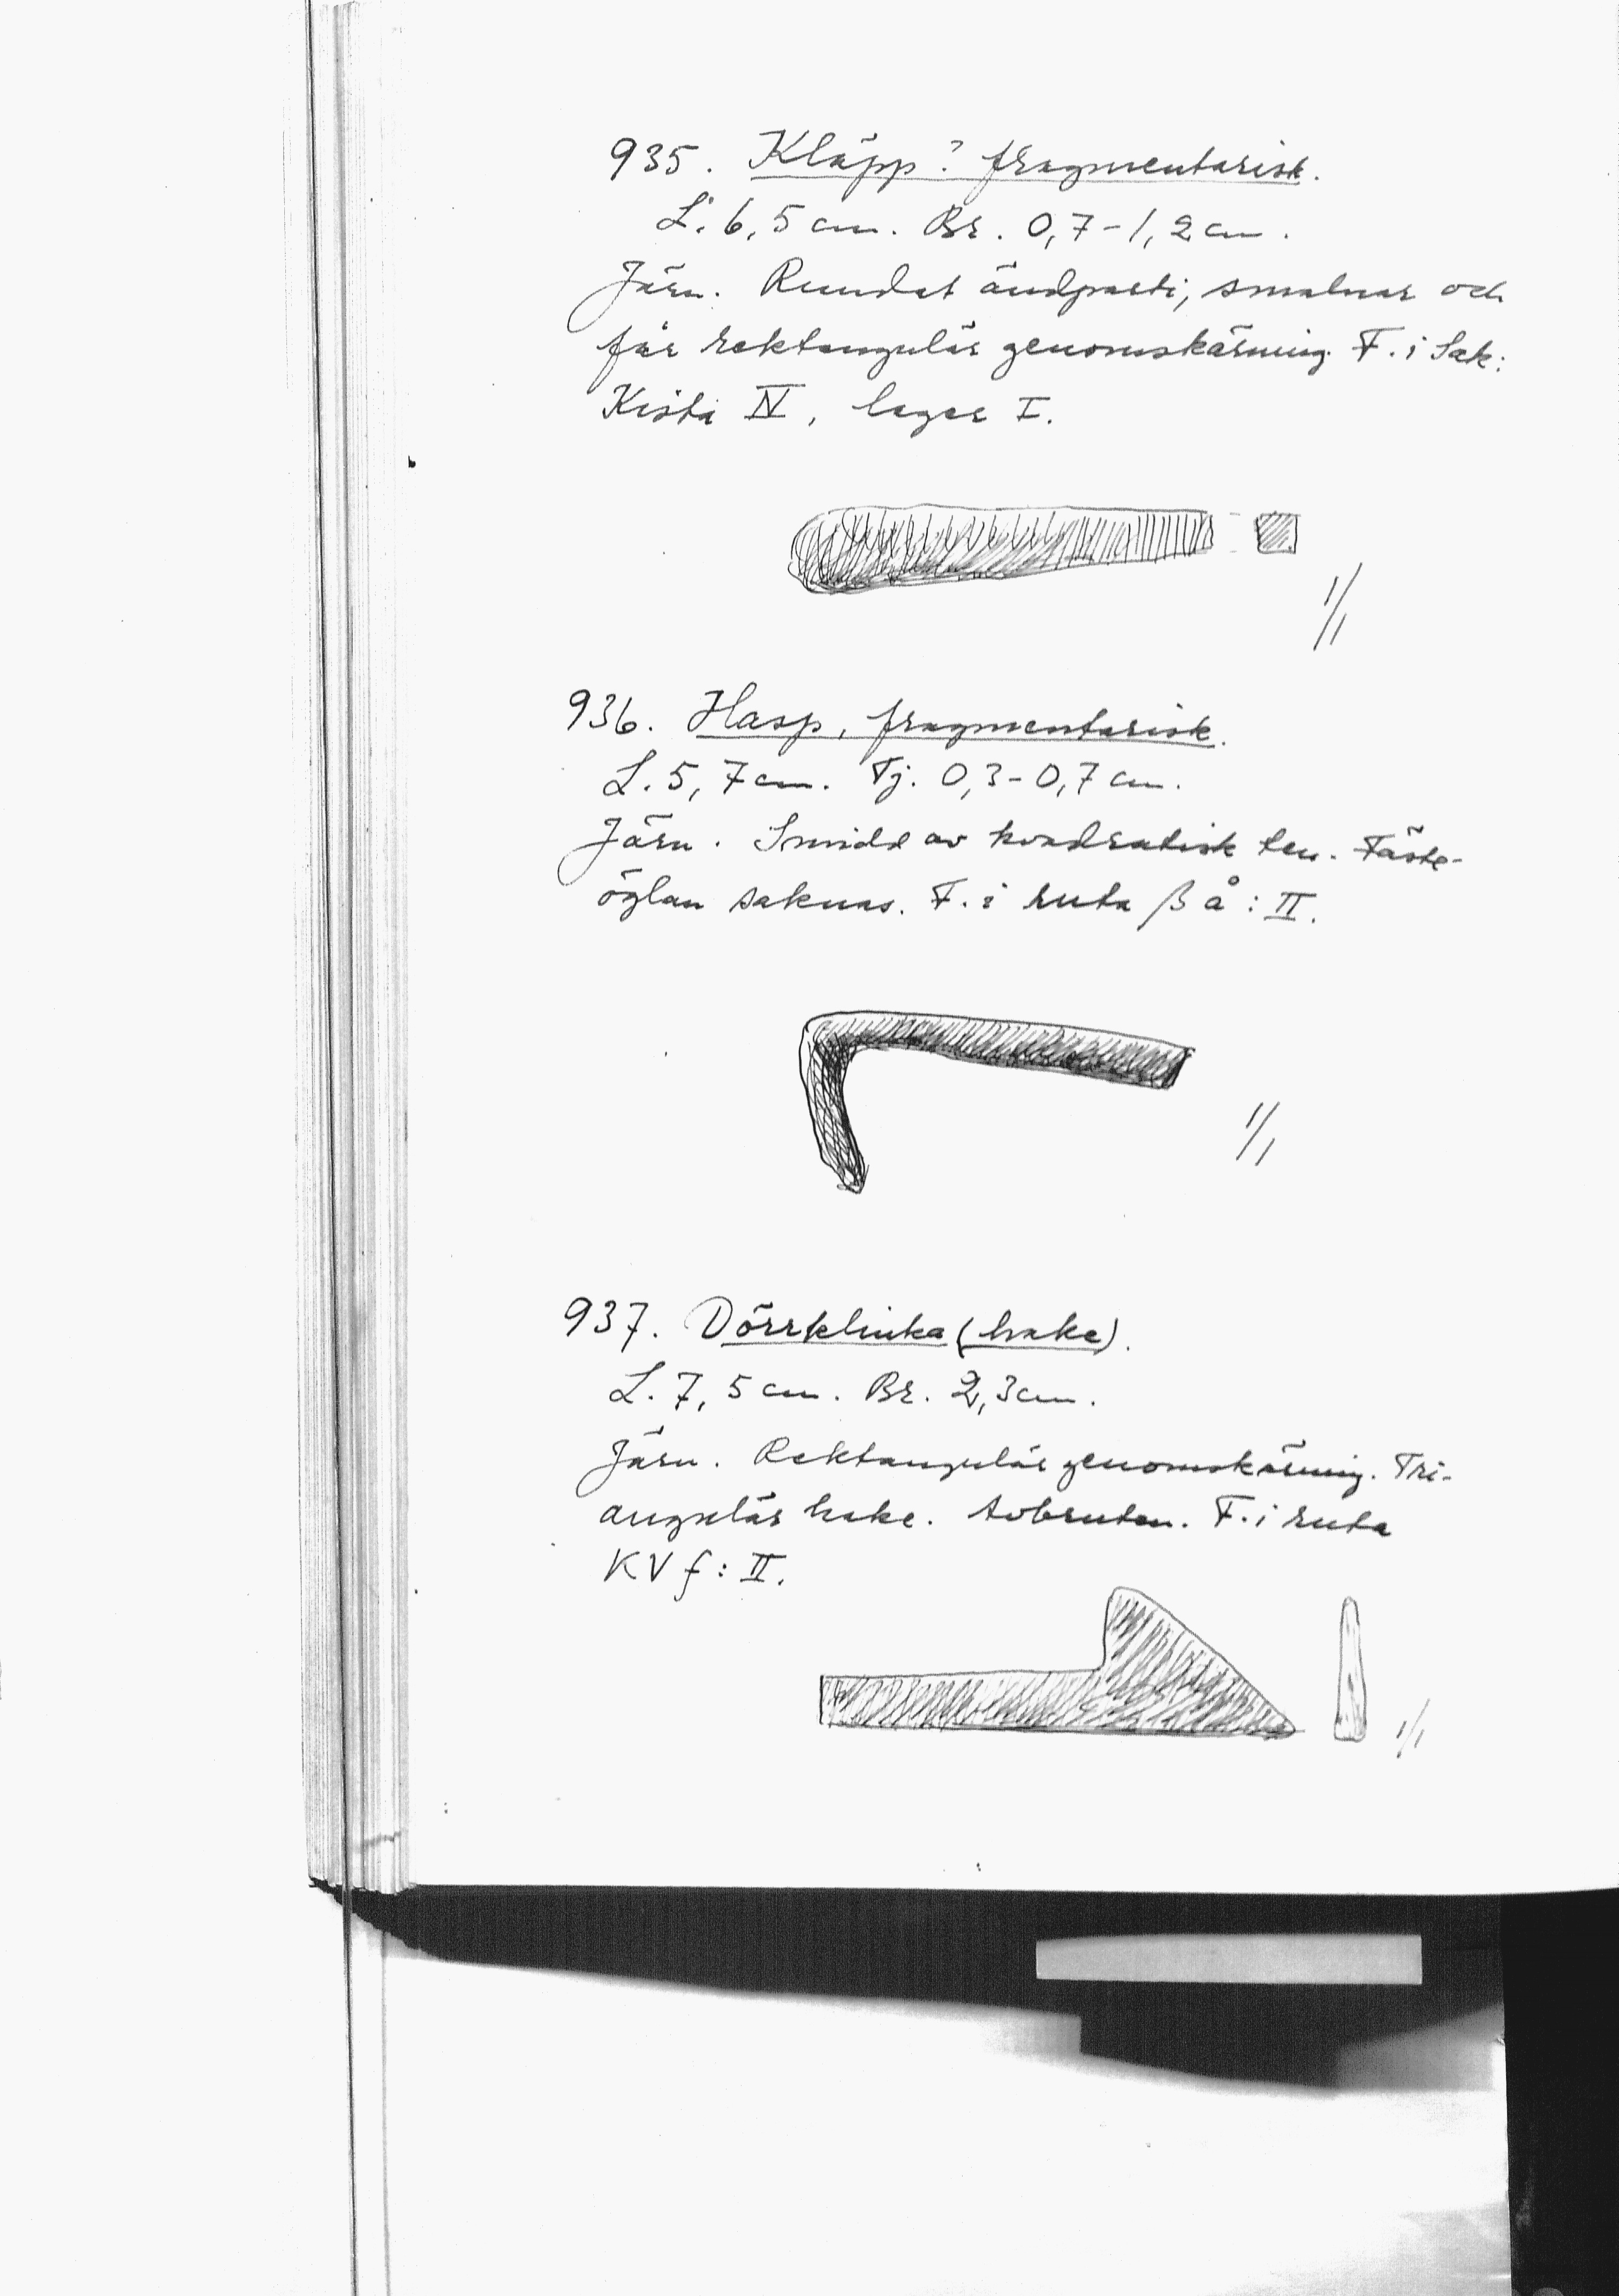 935. Kläpp? fragmentarisk.
L. 6,5 cm. Br. 0,7-1,2 cm.
Järn. Rundat ändparti, smalnar och
får rektangulär genomskärning. F. i Sak:
Kista IV, lager I.
1/1
936. Hasp, fragmentarisk.
L. 5,7 cm. Tj. 0,3-0,7 cm.
Järn. Smidd av kvadratisk ten. Fäste-
öglan saknas. F. i ruta β å : II.
1/1
937. Dörrklinka (hake).
L. 7,5 cm. Br. 2,3 cm.
Järn. Rektangulär genomskärning. Tri-
angulär hake. Avbruten. F. i ruta
KV f : II.
1/1